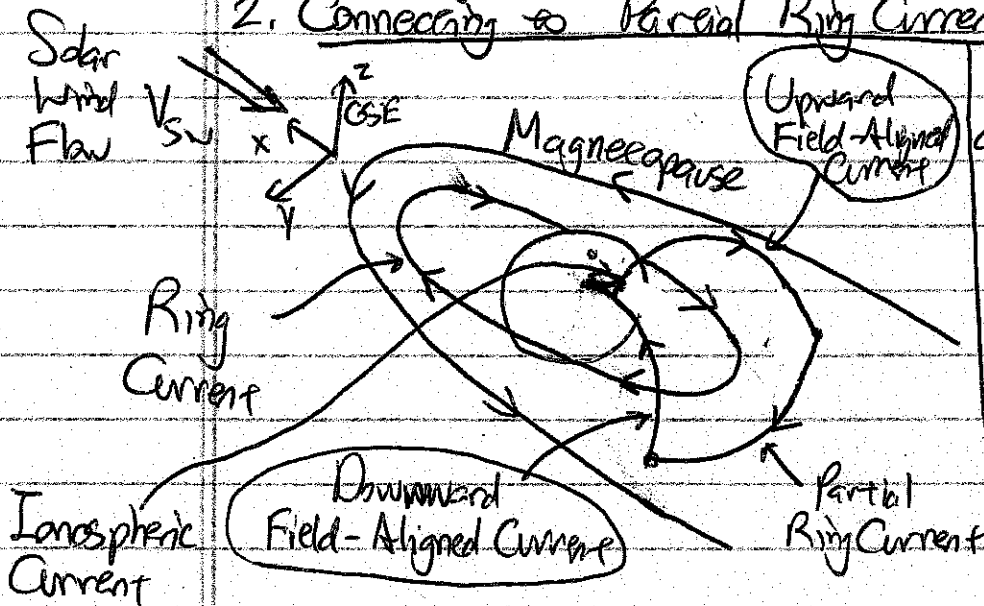 2. Connecting to Partial Ring Curren
Solar
Wind
Flow
V
SW
z
GSE
x
y
Magnetopause
Upward
Field-Aligned
Current
Ring
Current
Ionospheric
Current
Downward
Field-Aligned Current
Partial
Ring Current